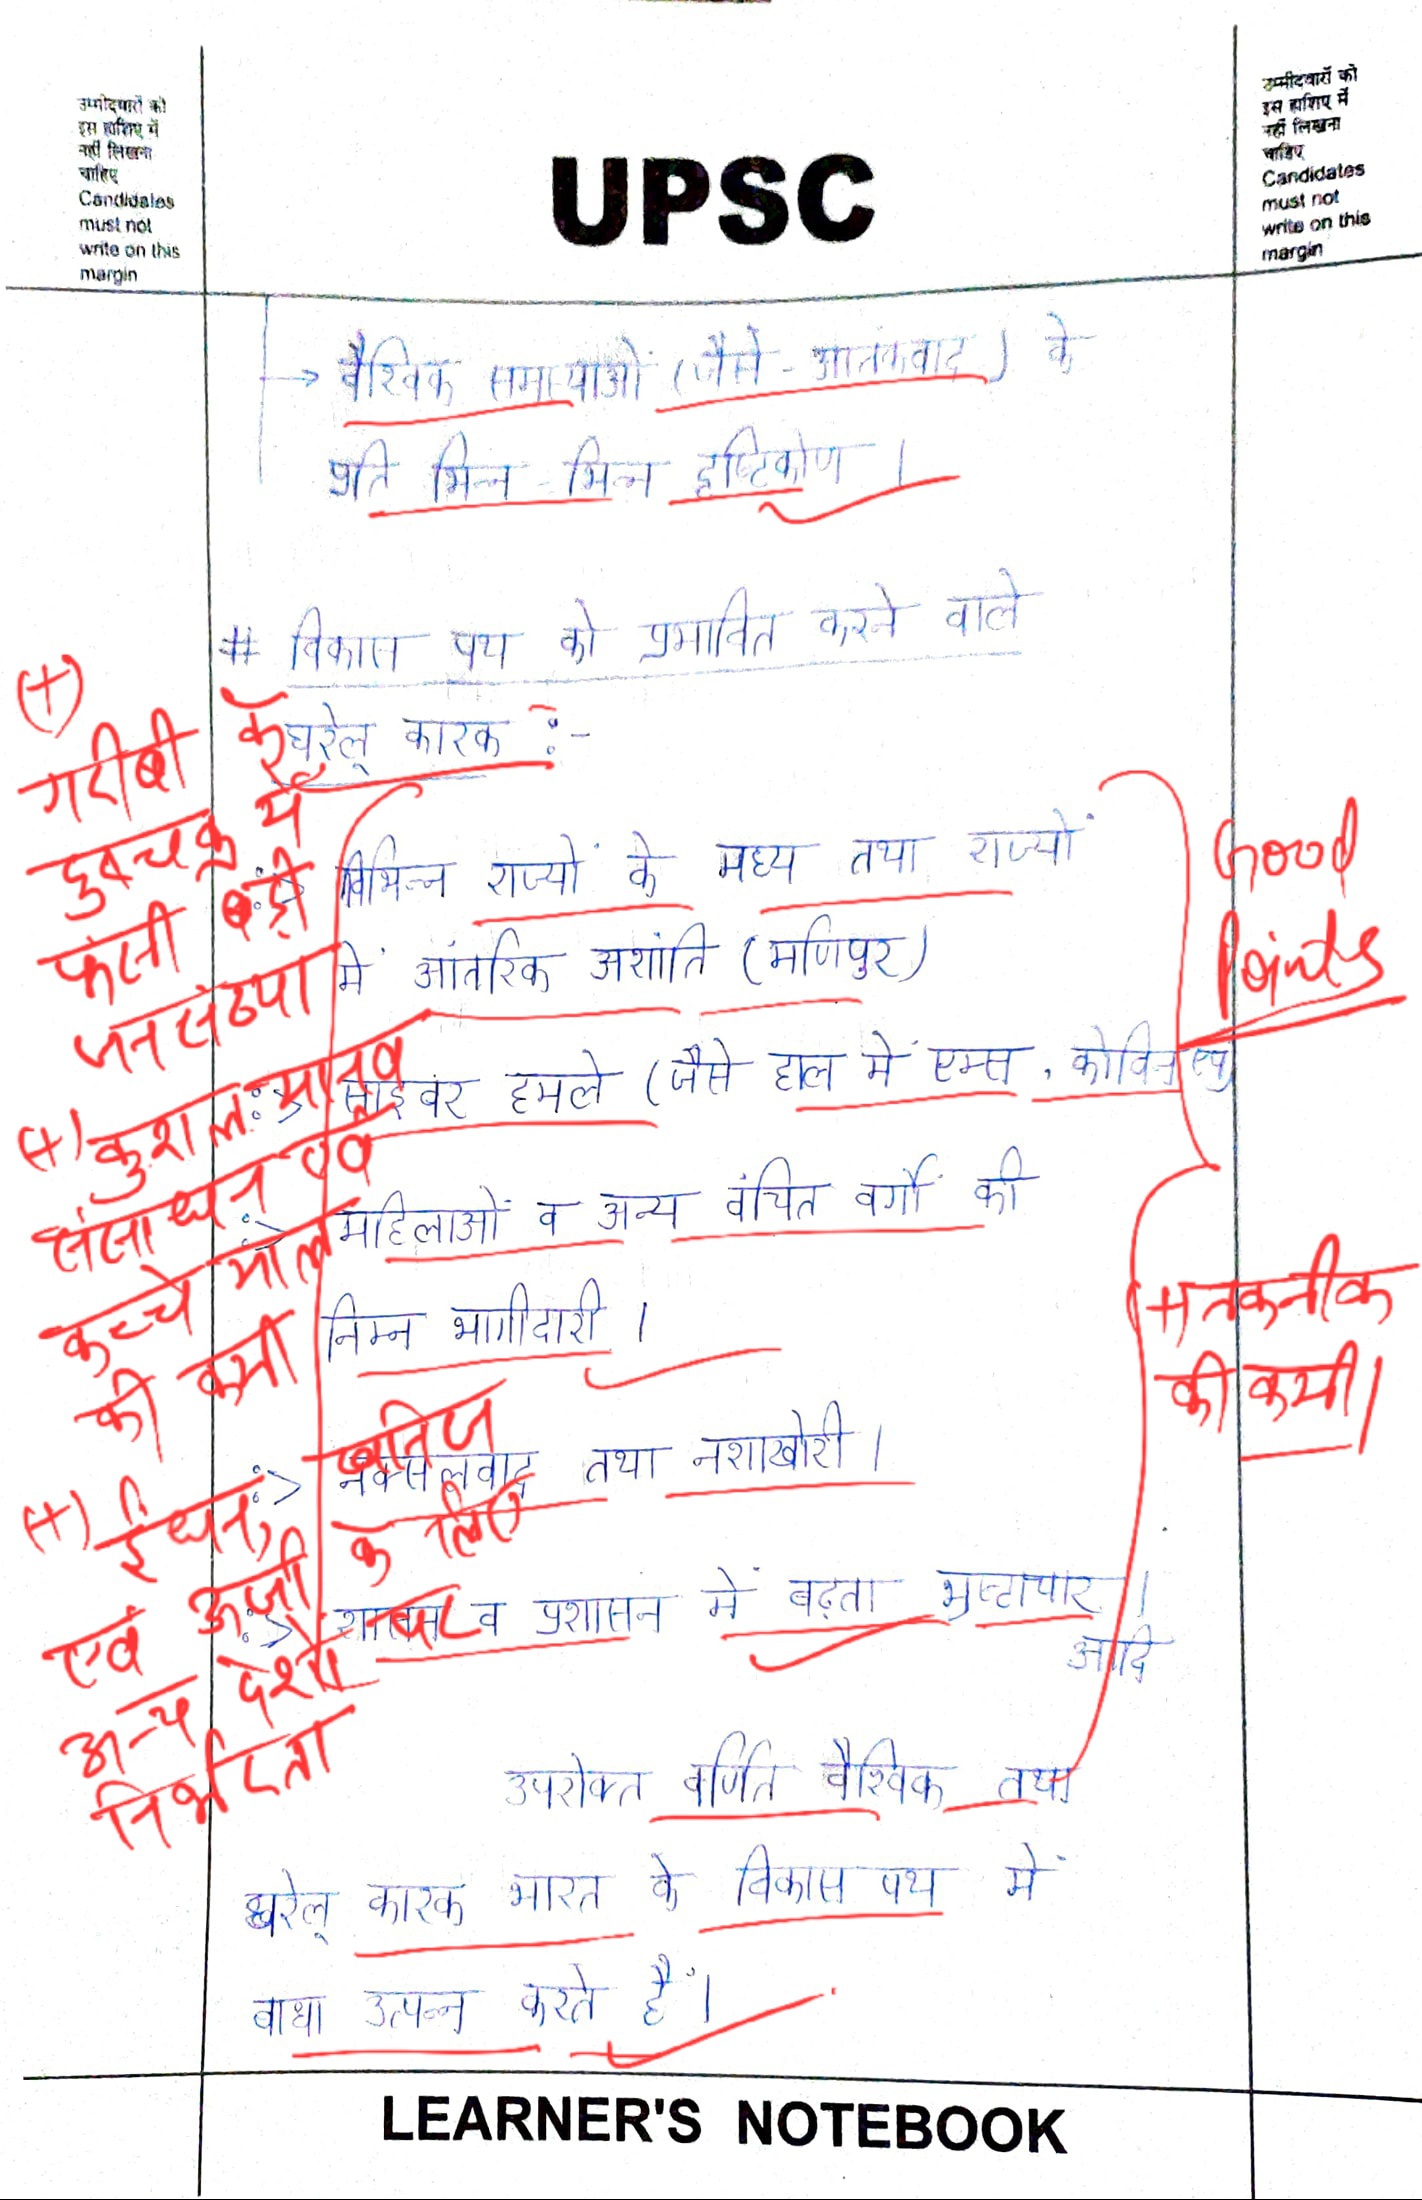 उम्मीदवारों को
इस हाशिए में
नहीं लिखना
चाहिए
Candidates
must not
write on this
margin
UPSC
उम्मीदवारों को
इस हाशिए में
नहीं लिखना
चाहिए
Candidates
must not
write on this
margin
→ वैश्विक समस्याओं (जैसे - आतंकवाद) के
प्रति भिन्न - भिन्न दृष्टिकोण ।
# विकास पथ को प्रभावित करने वाले
घरेलू कारक :-
विभिन्न राज्यों के मध्य तथा राज्यों
में आंतरिक अशांति (मणिपुर)
साइबर हमले (जैसे हाल में एम्स, कोविन
महिलाओं व अन्य वंचित वर्गों की
निम्न भागीदारी ।
नक्सलवाद तथा नशाखोरी ।
शासन व प्रशासन में बढ़ता भ्रष्टाचार ।
आदि
उपरोक्त वर्णित वैश्विक तथा
घरेलू कारक भारत के विकास पथ में
बाधा उत्पन्न करते हैं।
(+)
गरीबी के
दुष्चक्र में
फंसी बड़ी
जनसंख्या
(+) कुशल मानव
संसाधन एवं
कच्चे माल
की कमी
(+) ईंधन, खनिज
एवं ऊर्जा के लिए
अन्य देशों पर
निर्भरता
Good
Points
(+) तकनीक
की कमी।
LEARNER'S NOTEBOOK